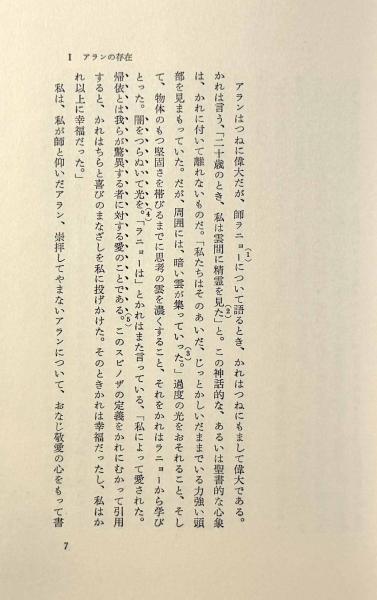 I アランの存在
アランはつねに偉大だが、師ラニョーについて語るとき、かれはつねにもまして偉大である。
(1)
かれは言う、「二十歳のとき、私は雲間に精霊を見た」と。この神話的な、あるいは聖書的な心象
(2)
は、かれに付いて離れないものだ。「私たちはそのあいだ、じっとかしいだままでいる力強い頭
部を見まもっていた。だが、周囲には、暗い雲が集っていった。」過度の光をおそれること、そし
(3)
て、物体のもつ堅固さを帯びるまでに思考の雲を濃くすること、それをかれはラニョーから学び
とった。闇をつらぬいて光を。「ラニョーは」とかれはまた言っている、「私によって愛された。
(4)
帰依とは我らが驚異する者に対する愛のことである。このスピノザの定義をかれにむかって引用
(5)
すると、かれはちらと喜びのまなざしを私に投げかけた。そのときかれは幸福だったし、私はか
れ以上に幸福だった。」
私は、私が師と仰いだアラン、崇拝してやまないアランについて、おなじ敬愛の心をもって書
7